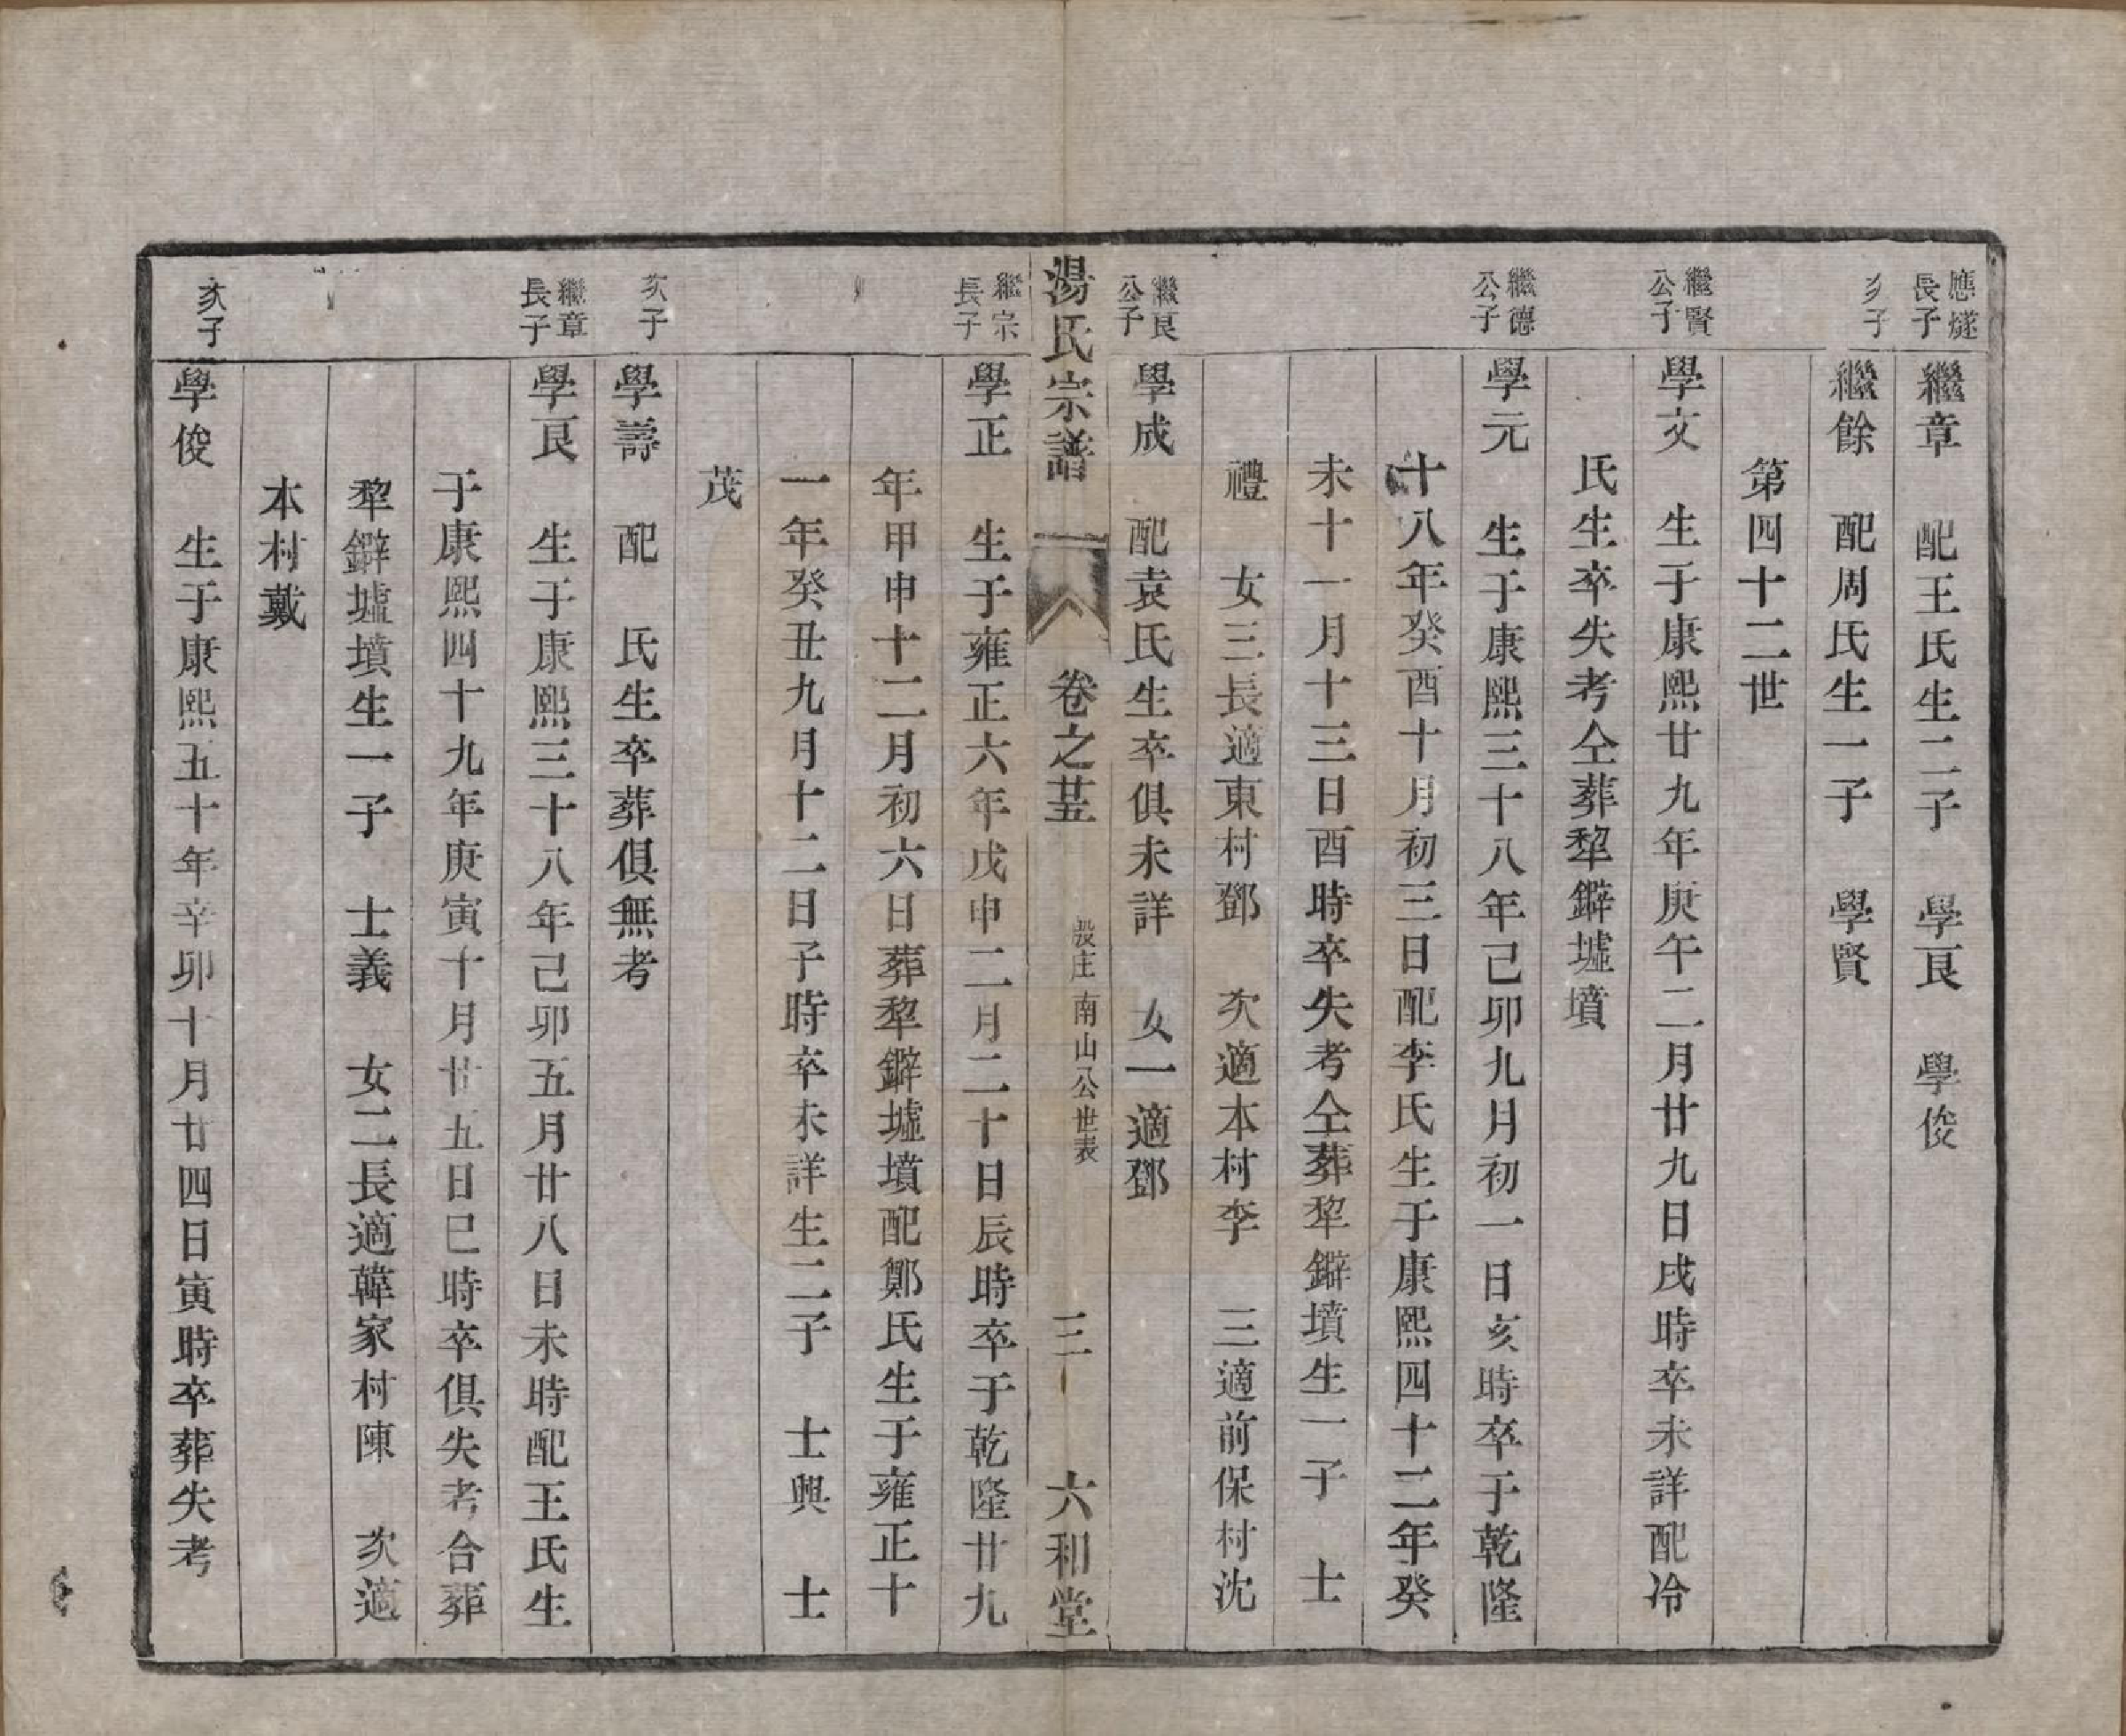 應燧長子
繼章　配王氏生二子　學良　學俊
次子
繼餘　配周氏生一子　學賢
第四十二世
繼賢公子
學文　生于康熙廿九年庚午二月廿九日戌時卒未詳配冷
氏生卒失考仝葬犂鐴墟墳
繼德公子
學元　生于康熙三十八年己卯九月初一日亥時卒于乾隆
十八年癸酉十月初三日配李氏生于康熙四十二年癸
未十一月十三日酉時卒失考仝葬犂鐴墳生一子　士
禮　女三長適東村鄧　次適本村李　三適前保村沈
繼良公子
學成　配袁氏生卒俱未詳　女一適鄧
湯氏宗譜　卷之五　庄南山公世表　三　六和堂
繼宗長子
學正　生于雍正六年戊申二月二十日辰時卒于乾隆廿九
年甲申十二月初六日葬犂鐴墟墳配鄭氏生于雍正十
一年癸丑九月十二日子時卒未詳生二子　士興　士
茂
次子
學壽　配　氏生卒葬俱無考
繼章長子
學良　生于康熙三十八年己卯五月廿八日未時配王氏生
于康熙四十九年庚寅十月廿五日巳時卒俱失考合葬
犂鐴墟墳生一子　士義　女二長適韓家村陳　次適
本村戴
次子
學俊　生于康熙五十年辛卯十月廿四日寅時卒葬失考